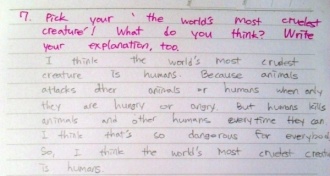 7. Pick your ' the world's most cruelest
creature'! What do you think? Write
your explanation, too.
I think the world's most crudest
creature is humans. Because animals
attacks other animals or humans when only
they are hungry or angry. But humans kills
animals and other humans everytime they can
I think that's so dangerous for everybod
So, I think the world's most crudest creatu
is humans.